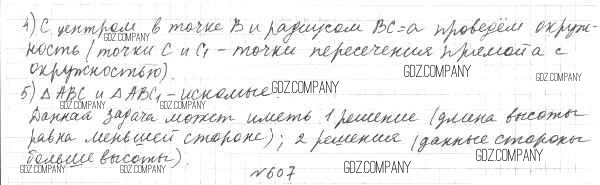 4) С центром в точке B и радиусом BC=a проведём окруж-
ность (точки C и C₁ - точки пересечения прямой a с
окружностью).
5) △ABC и △ABC₁ - искомые.
Данная задача может иметь 1 решение (длина высоты
равна меньшей стороне); 2 решения (данные стороны
больше высоты).
№607
GDZ.COMPANY
GDZ.COMPANY
GDZ.COMPANY
GDZ.COMPANY
GDZ.COMPANY
GDZ.COMPANY
GDZ.COMPANY
GDZ.COMPANY
GDZ.COMPANY